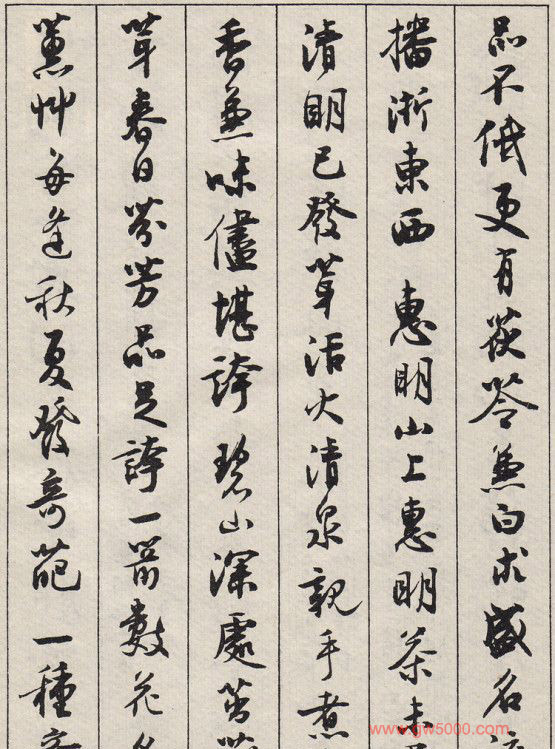 品不低更有茯苓兼白朮盛名
播浙東西 惠明山上惠明茶未
清明已發芽活火清泉親手煮
香兼味儘堪誇 碧山深處茁
芽春日芬芳品足誇一箭數花
蕙艸每逢秋夏發奇葩 一種
www.gw5000.com